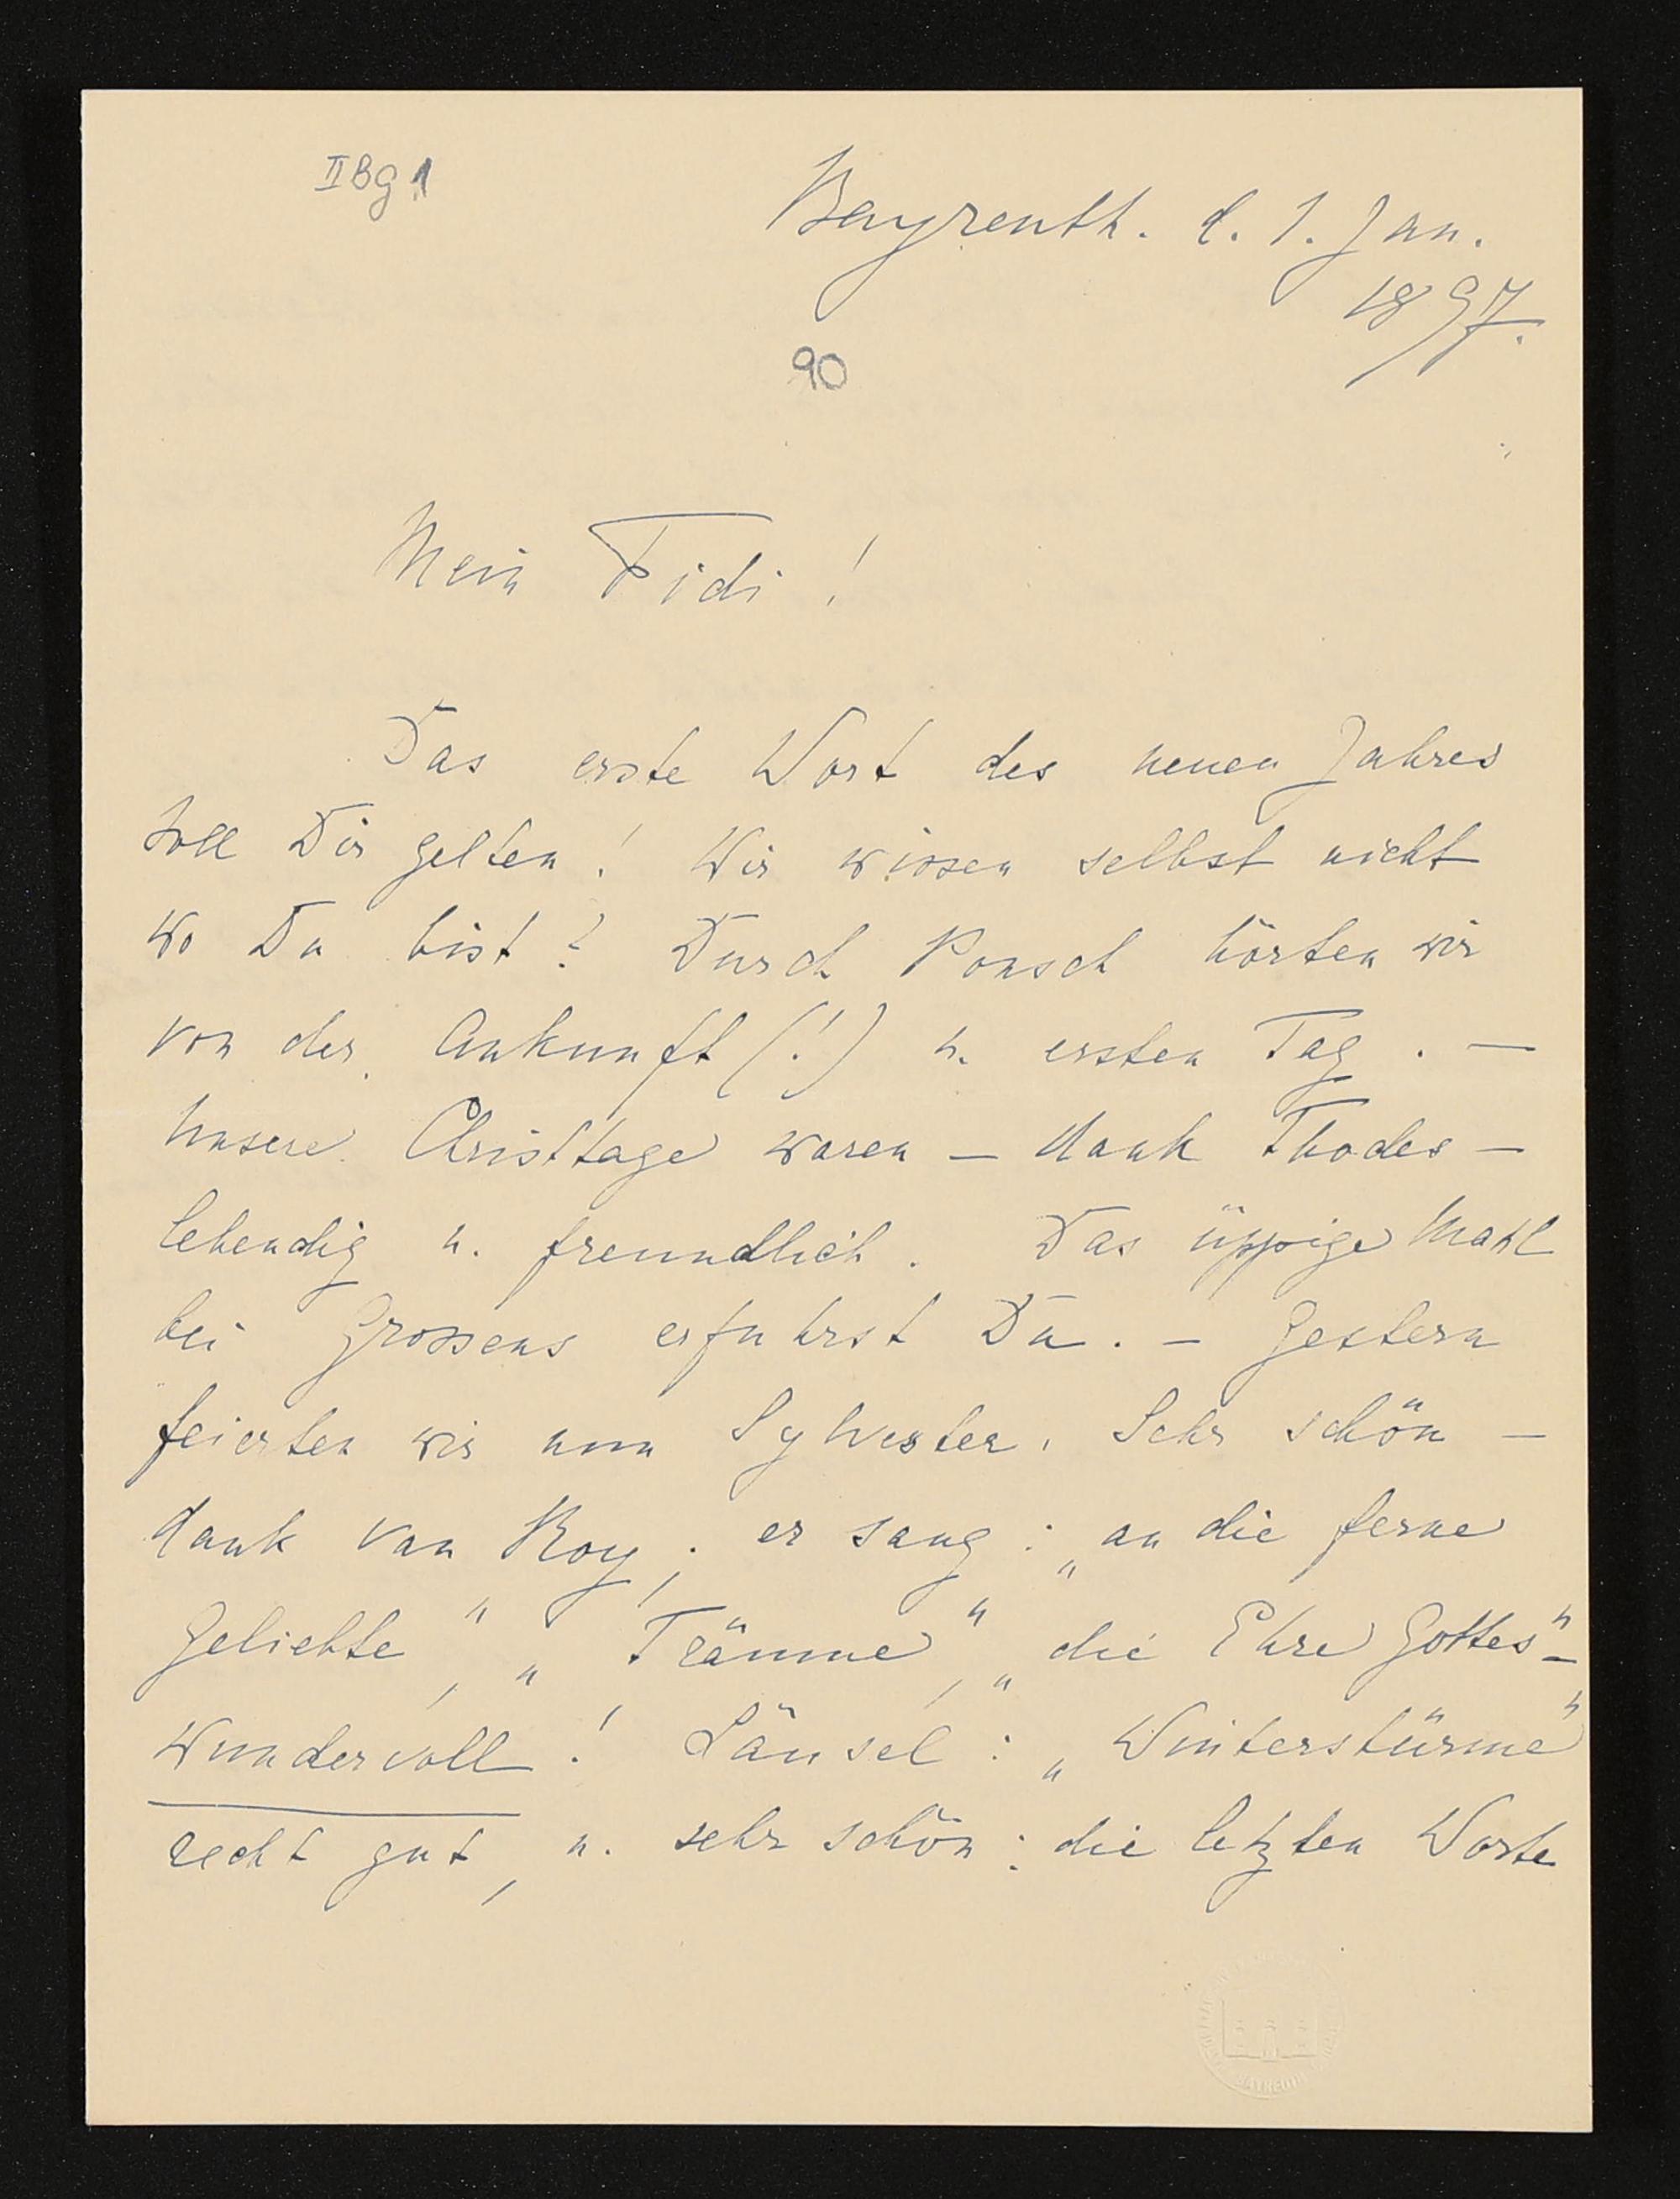 II B g 1
Bayreuth. d. 1. Jan.
1897.
90
Mein Fidi!
Das erste Wort des neuen Jahres
soll Dir gelten! Wir wissen selbst nicht
wo Du bist? Durch Ponsch hörten wir
von der Ankunft (!) u. ersten Tag. —
Unsere Christtage waren — dank Thodes —
lebendig u. freundlich. Das üppige Mahl
bei Grossens erfuhrst Du. — Gestern
feierten wir nun Sylvester. Sehr schön —
dank van Roy; er sang: „an die ferne
Geliebte", „Träume", „die Ehre Gottes" —
wundervoll! Länsel: „Winterstürme"
recht gut, u. sehr schön: die letzten Worte
BAYREUTH